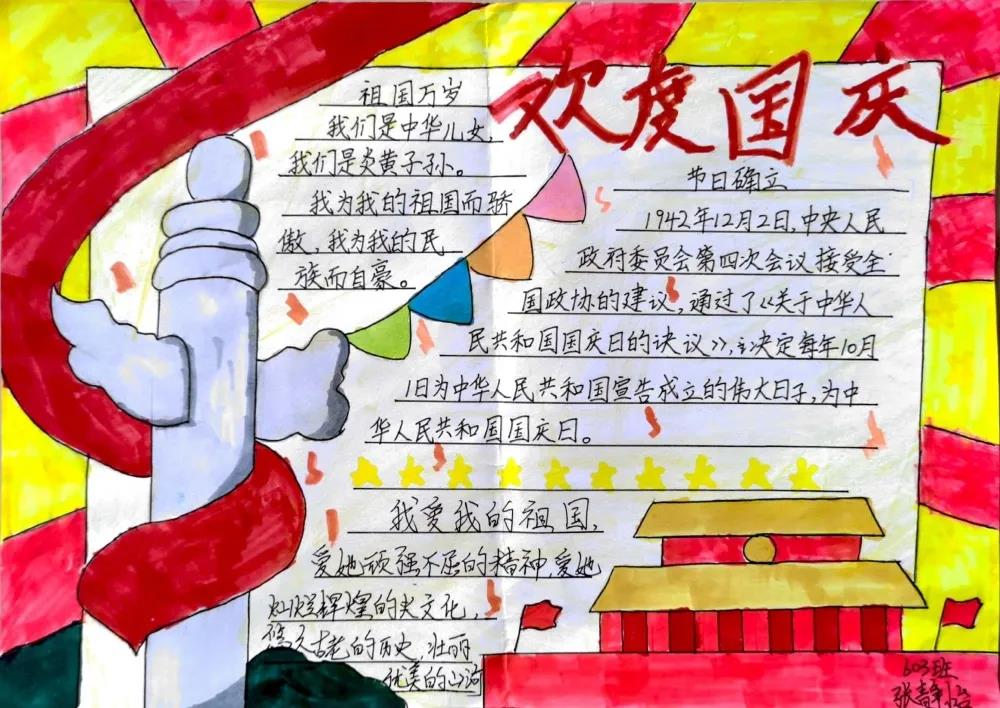 欢度国庆
祖国万岁
我们是中华儿女,
我们是炎黄子孙。
我为我的祖国而骄
傲,我为我的民
族而自豪。
节日确立
1942年12月2日,中央人民
政府委员会第四次会议接受全
国政协的建议,通过了《关于中华人
民共和国国庆日的诀议》,决定每年10月
1日为中华人民共和国宣告成立的伟大日子,为中
华人民共和国国庆日。
我爱我的祖国,
爱她顽强不屈的精神,爱她
辉煌的文化,
古老的历史,壮丽
优美的山河
603班
张